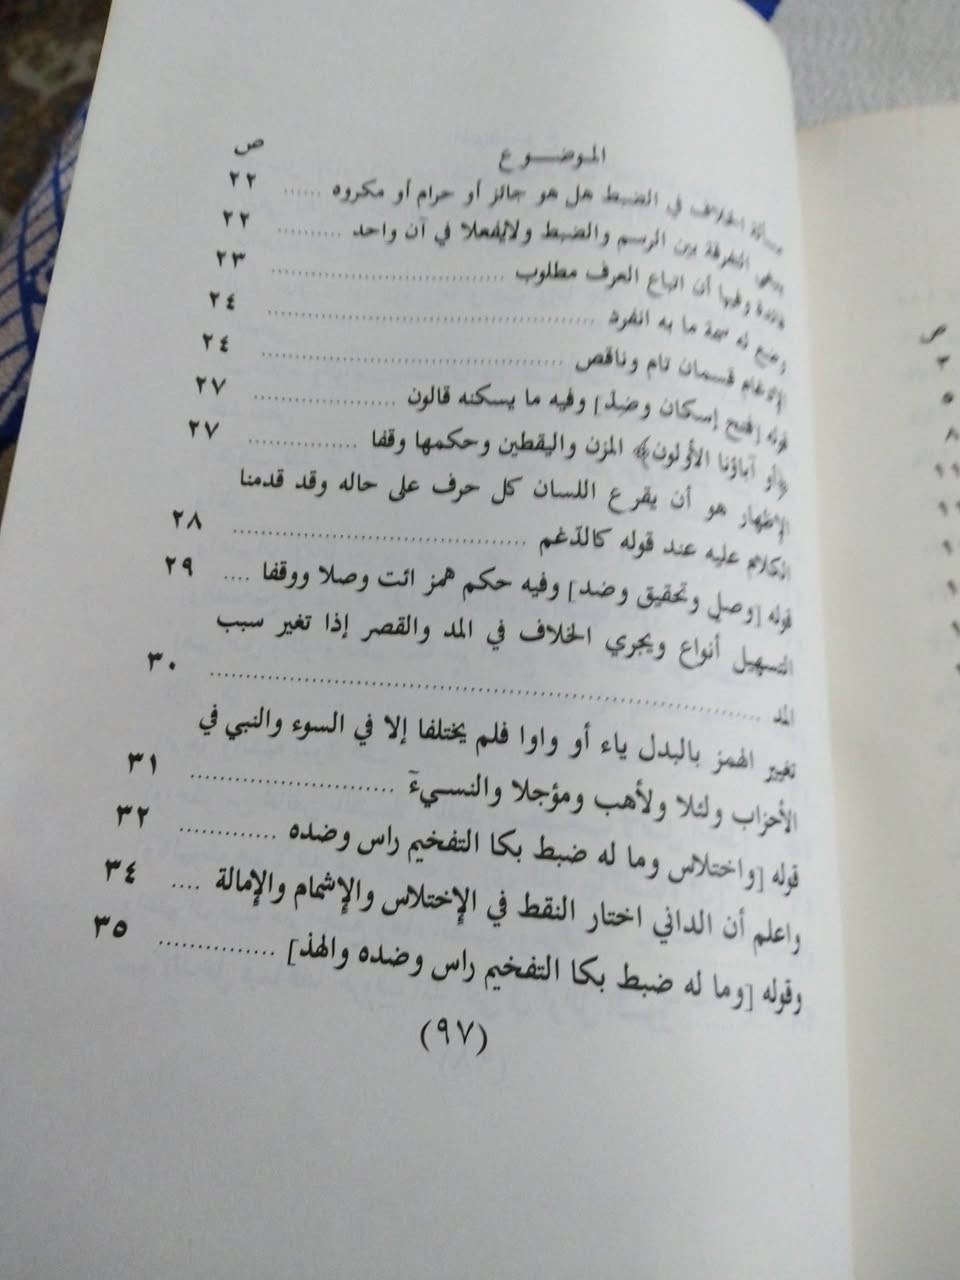 الموضوع ص
مسألة الخلاف في الضبط هل هو جائز أو حرام أو مكروه ...... ٢٢
التفرقة بين الرسم والضبط ولايفعلا في آن واحد .......... ٢٢
فائدة وفيها أن اتباع العرف مطلوب .......... ٢٣
وضع له سمة ما به انفرد .......... ٢٤
الإدغام قسمان تام وناقص .......... ٢٤
قوله [فتح إسكان وضد] وفيه ما يسكنه قالون .......... ٢٧
﴿أو آباؤنا الأولون﴾ المزن واليقطين وحكمها وقفا .......... ٢٧
الإظهار هو أن يقرع اللسان كل حرف على حاله وقد قدمنا
الكلام عليه عند قوله كالدّغم .......... ٢٨
قوله [وصل وتحقيق وضد] وفيه حكم همز ائت وصلا ووقفا .... ٢٩
التسهيل أنواع ويجري الخلاف في المد والقصر إذا تغير سبب
المد .......... ٣٠
تغيير الهمز بالبدل ياء أو واوا فلم يختلفا إلا في السوء والنبي في
الأحزاب ولئلا ولأهب ومؤجلا والنسيءَ .......... ٣١
قوله [واختلاس وما له ضبط بكا التفخيم راس وضده .......... ٣٢
واعلم أن الداني اختار النقط في الإختلاس والإشمام والإمالة .... ٣٤
وقوله [وما له ضبط بكا التفخيم راس وضده والهذ] .......... ٣٥
(٩٧)
ص